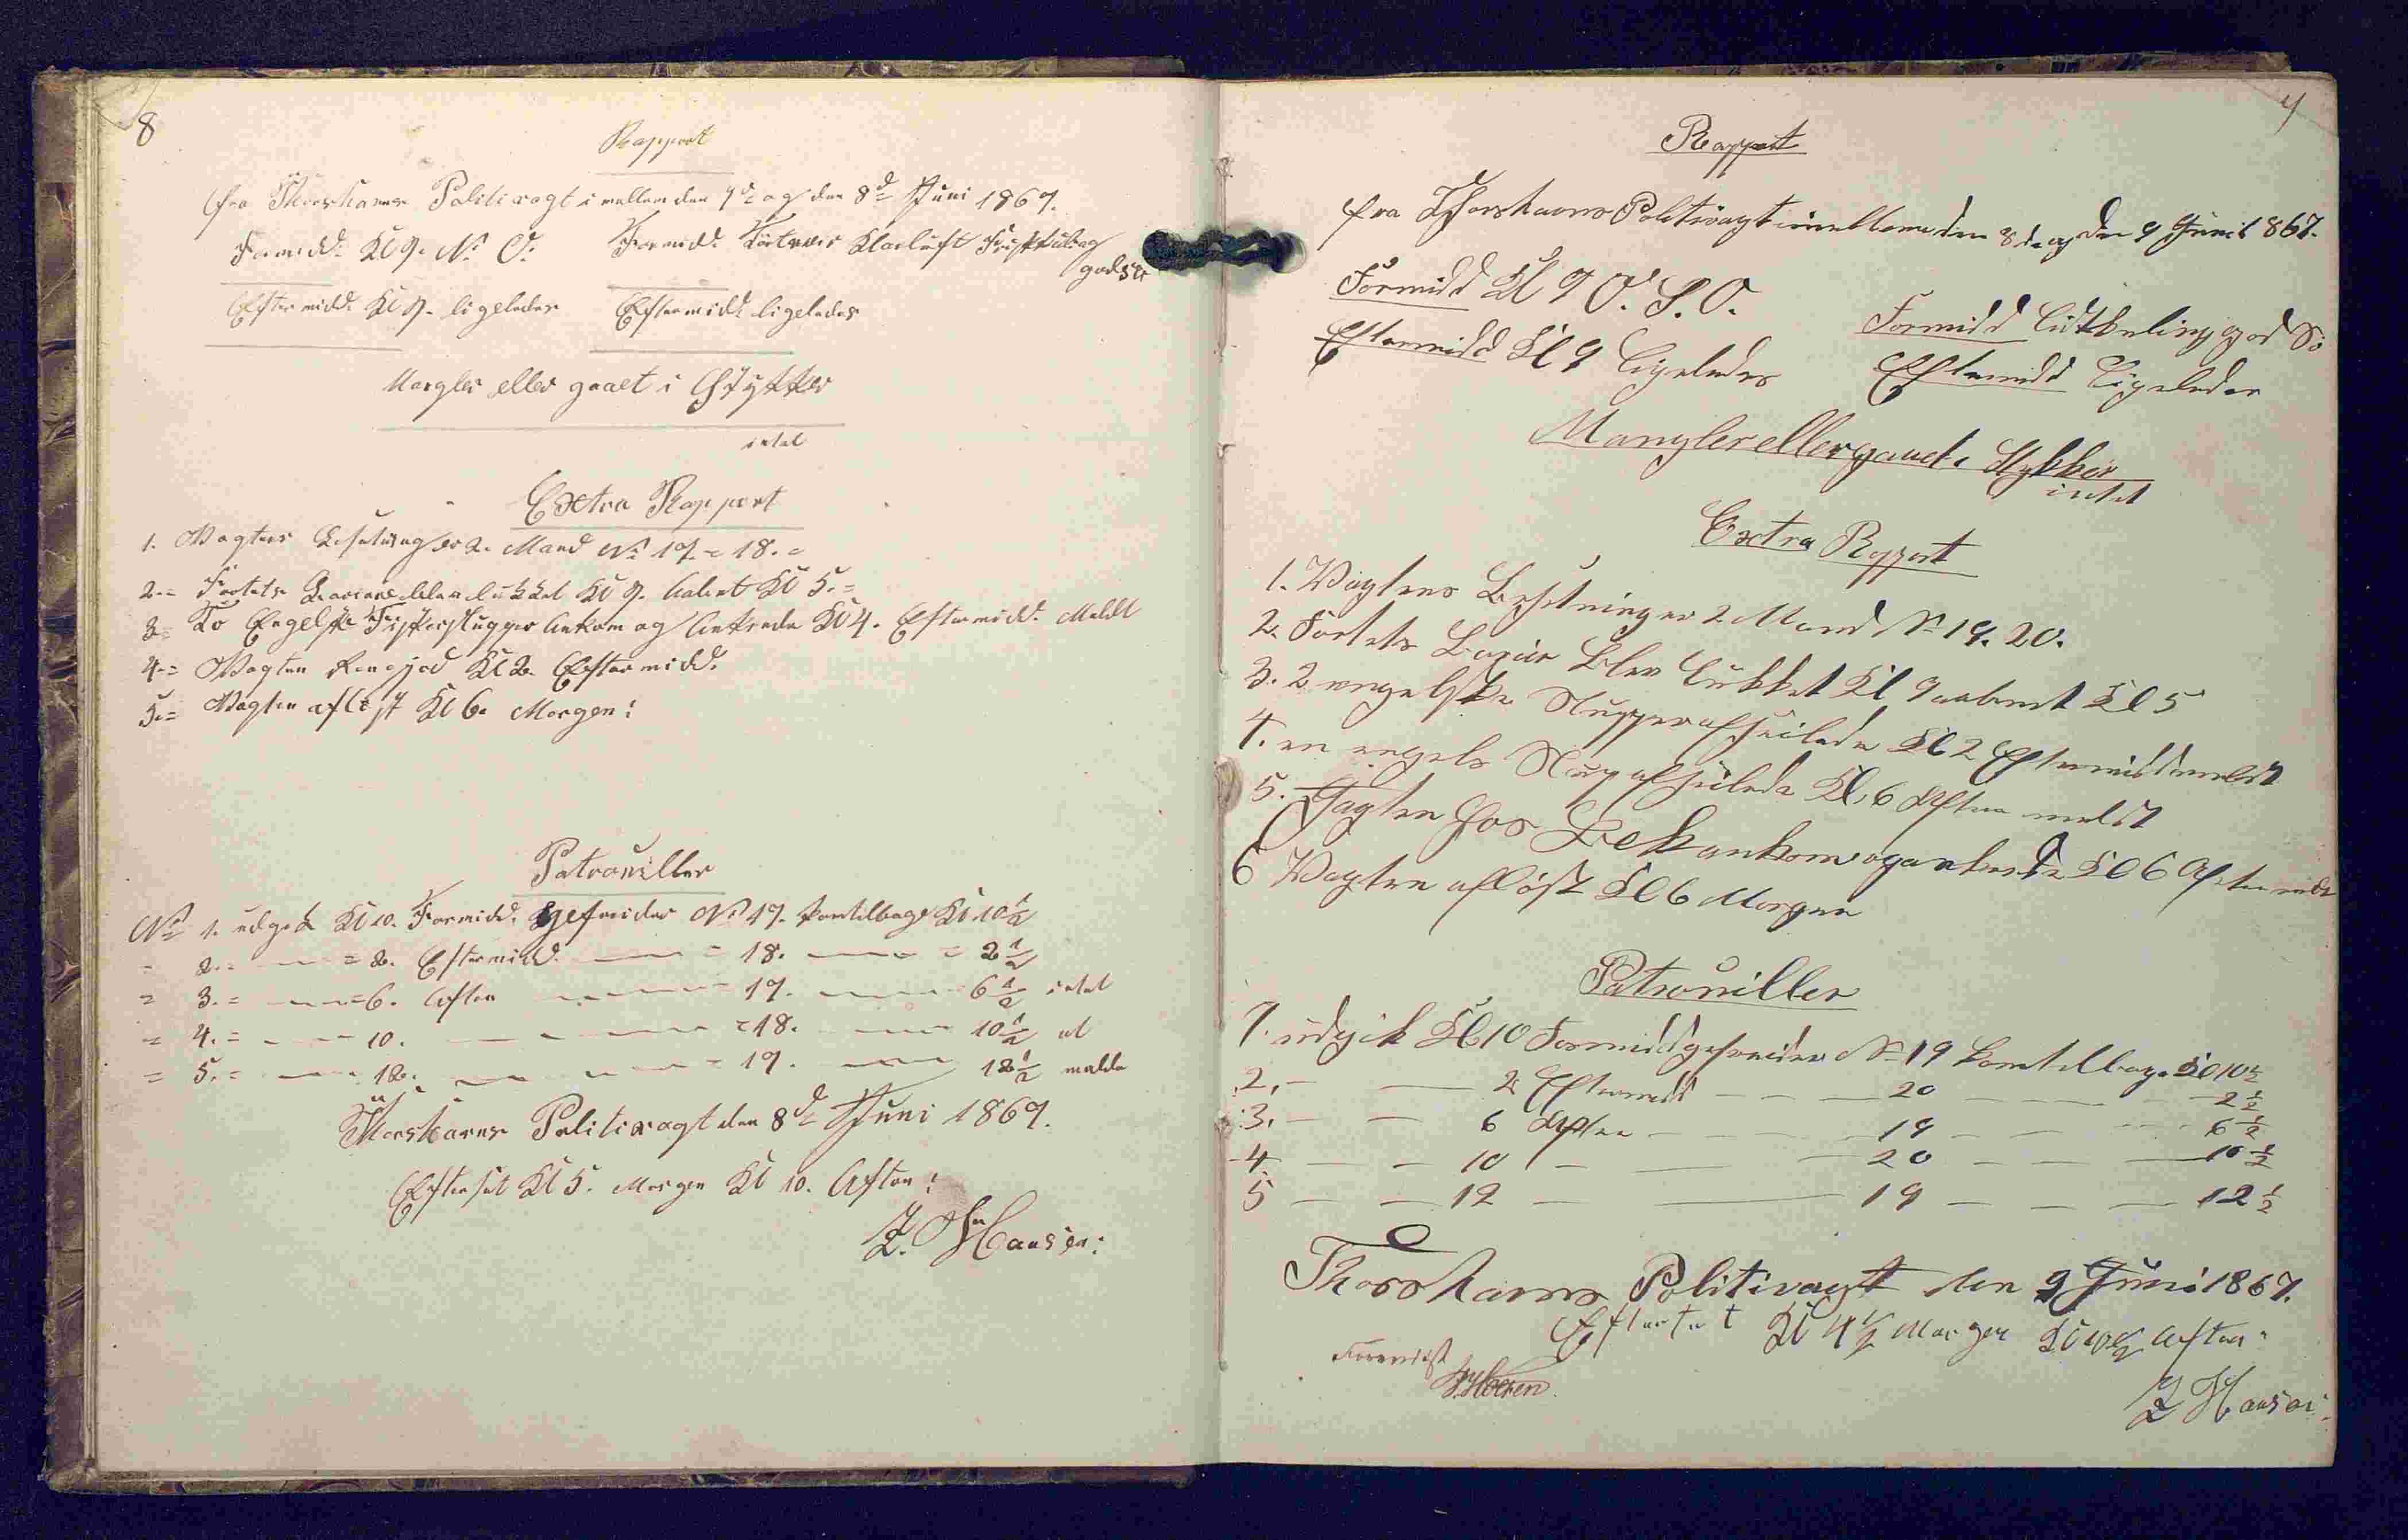 8
Rapport
fra Thorshavns Politivagt imellem den 7de og den 8de Juni 1867.
Formidd. Kl 9. N. O. Formidd. Tørtveir Klarluft Frisk Kuling
god Sø
Eftermidd. Kl 9. ligeledes Eftermidd. ligeledes
Mangler eller gaaet i Stykker
intet
Extra Rapport
1. Vagtens Besetning er 2. Mand No 17. = 18. =
2. = Fortets blev lukket Kl 9. aabnet Kl 5. =
3 = To Engelske Fiskerslupper Ankom og Ankrede Kl 4. Eftermidd. Meldt
4. = Vagten Rengjort Kl 2. Eftermidd.
5. = Vagten afløst Kl 6. Morgen:
Patrouiller
No 1. udgik Kl 10. Formidd. gefreider No 17. kom tilbage Kl 10 1/2
" 2. = — = 2. Eftermidd. — = 18. — = 2 1/2
= 3. = — = 6. Aften — 17. — 6 1/2 intet
= 4. = — 10. — — = 18. — 10 1/2 at
= 5. = — 12. — — = 17. — 12 1/2 melde
Thorshavns Politivagt den 8de Juni 1867.
Efterset Kl 5. Morgen Kl 10. Aften:
Z. Hansen:
9
Rapport
fra Thorshavns Politivagt imellem den 8de og den 9 Juni 1867.
Formidd Kl 9 O. S. O. Formidd Kuling god Sø
Eftermidd Kl 9 Ligeledes Eftermidd Ligeledes
Mangler eller gaaet i Stykker
intet
Extra Rapport
1. Vagtens Besetning er 2 Mand No 19. 20.
2. Fortets blev lukket Kl 9 aabnet Kl 5
3. 2 engelske Slupper afseilede Kl 2 Eftermidd meldt
4. en engelsk Slup afseilede Kl. 6 Aften meldt
5. Jagten Fox ankom og ankrede Kl 6 Aften meldt
6 Vagten afløst Kl 6 Morgen
Patrouiller
1. udgik Kl 10 Formidd gefreider No 19 kom tilbage Kl 10 1/2
2. — — 2 Eftermidd — — 20 — — 2 1/2
3. — — 6 Aften — — 19 — — 6 1/2
4. — — 10 — — 20 — — 10 1/2
5 — — 12 — — 19 — — 12 1/2
Thorshavns Politivagt den 9 Juni 1867.
Efterset Kl 4 1/2 Morgen Kl 10 1/2 Aften:
Foreviist
Z Hansen: